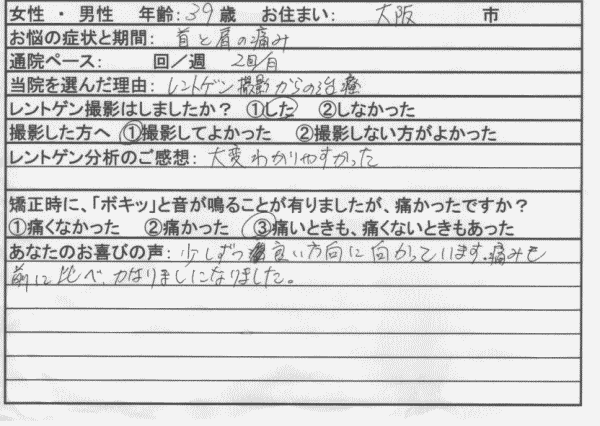 女性 ・ 男性　年齢: 39 歳　お住まい: 大阪 市
お悩の症状と期間: 首と肩の痛み
通院ペース:　回／週　2回/月
当院を選んだ理由: レントゲン撮影からの治療
レントゲン撮影はしましたか？ ①した ②しなかった
撮影した方へ ①撮影してよかった ②撮影しない方がよかった
レントゲン分析のご感想: 大変わかりやすかった
矯正時に、「ボキッ」と音が鳴ることが有りましたが、痛かったですか？
①痛くなかった ②痛かった ③痛いときも、痛くないときもあった
あなたのお喜びの声: 少しずつ良い方向に向かっています。痛みも
前に比べ、かなりましになりました。